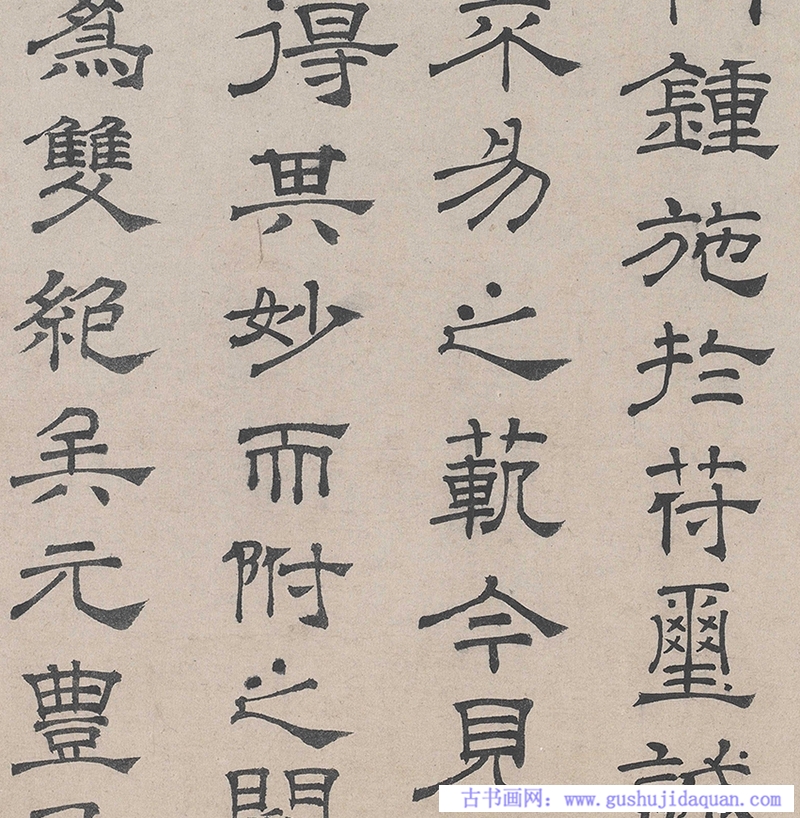 鍾施於苻璽誠
不易之範今見
得其妙而附之間
為雙絕矣元豐
古书画网：www.gushujidaquan.com